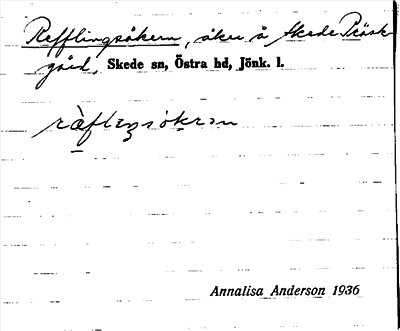 Refflingsåkern, åker å Skede Präst-
gård, Skede sn, Östra hd, Jönk. l.
ràflɩŋsåkɐɹn
Annalisa Anderson 1936